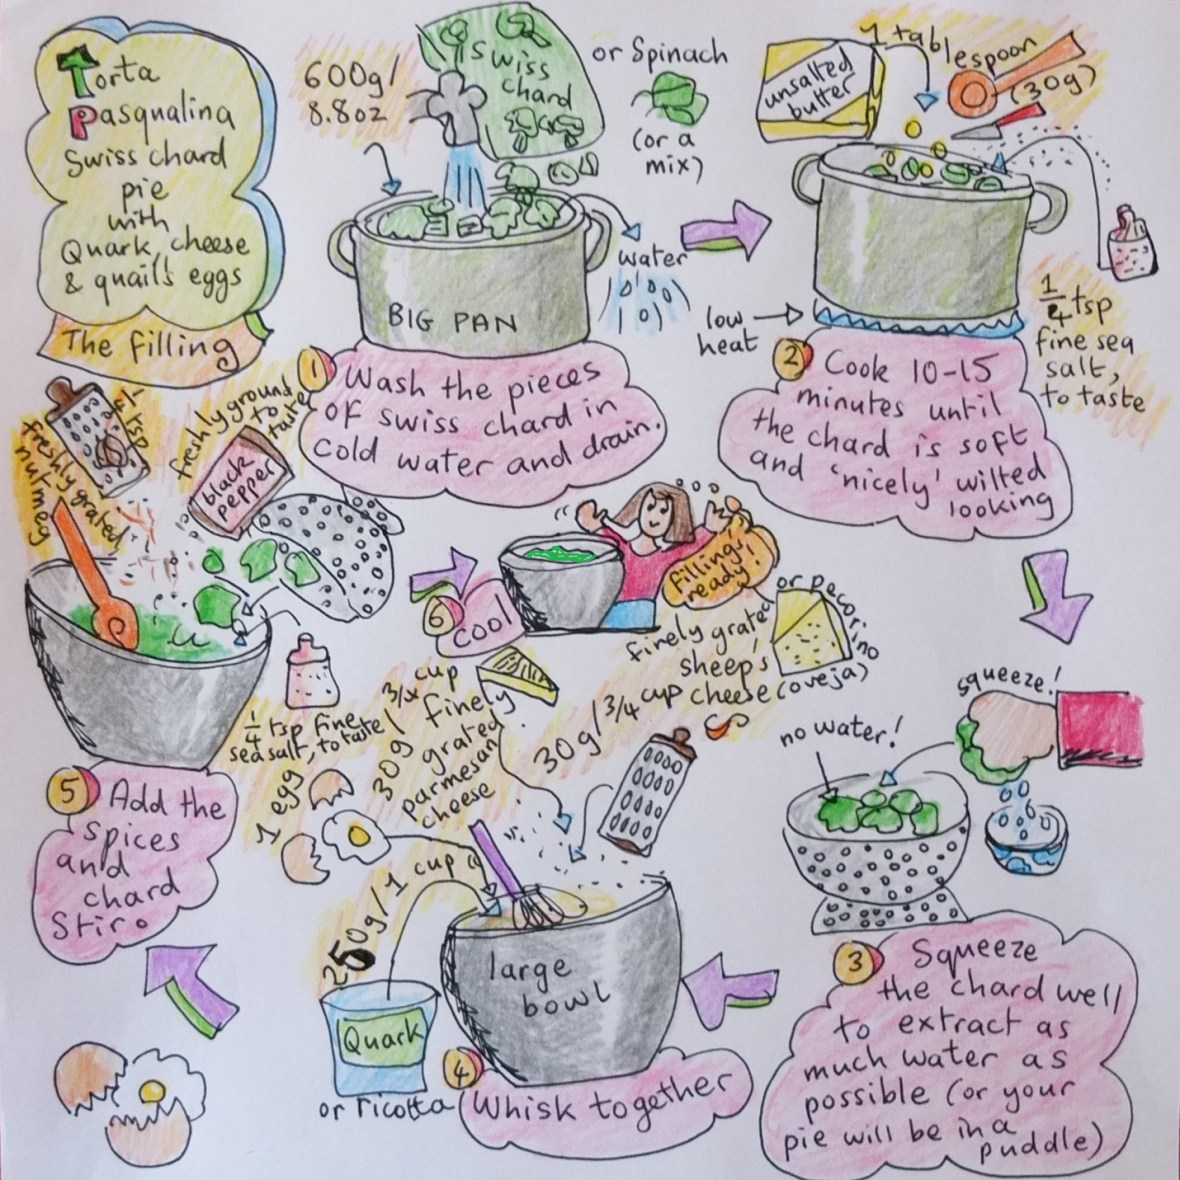 Torta
Pasqualina
Swiss chard
pie
with
Quark cheese
& quail's eggs
The filling
600g/
8.8oz
Swiss
chard
or Spinach
(or a
mix)
water
BIG PAN
1 Wash the pieces
of swiss chard in
cold water and drain.
unsalted
butter
1 tablespoon
(30g)
low
heat
1/4 tsp
fine sea
salt,
to taste
2 Cook 10-15
minutes until
the chard is soft
and 'nicely' wilted
looking
squeeze!
no water!
3 Squeeze
the chard well
to extract as
much water as
possible (or your
pie will be in a
puddle)
1 egg
30g/3/4 cup
finely
grated
parmesan
cheese
finely grated
sheep's
30g/3/4 cup cheese (oveja)
or pecorino
250g/1 cup
Quark
or ricotta
large
bowl
4 Whisk together
freshly grated
nutmeg
1/4 tsp
freshly ground
to
taste
black
pepper
1/4 tsp fine
sea salt, to taste
5 Add the
spices
and
chard
Stir.
6 Cool
Filling's
ready!